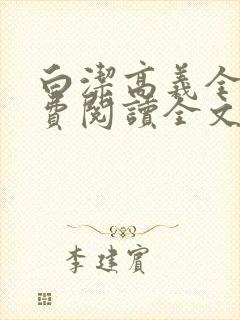 白潔高義全
費閱讀全文
李建賓